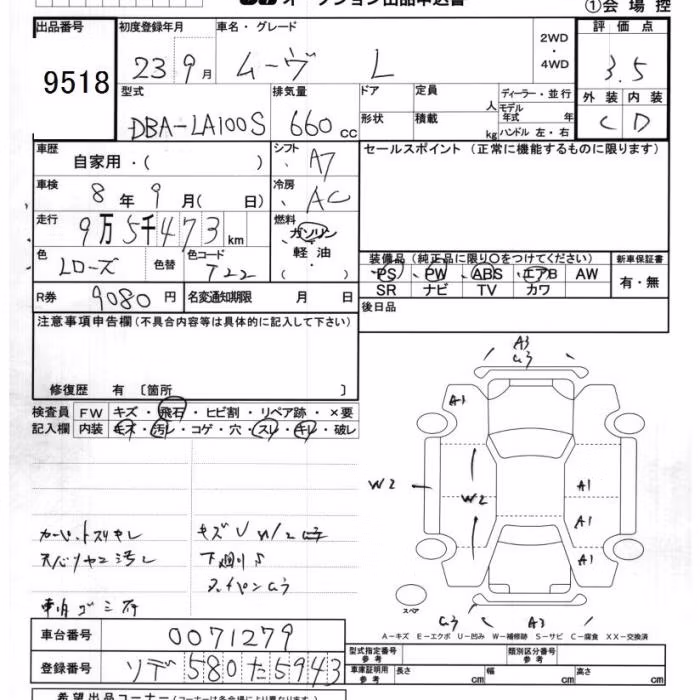 オークション出品申込書
①会場控
出品番号 初度登録年月 車名・グレード 2WD・4WD 評価点
9518 23 9月 ムーヴ L 3.5
型式 排気量 ドア 定員 人 ディーラー・並行 外装 内装
DBA-LA100S 660cc 形状 積載 kg モデル年式 年 ハンドル 左・右 C D
車歴 自家用・( ) シフト A7 セールスポイント (正常に機能するものに限ります)
車検 8年 9月( 日) 冷房 AC
走行 9万5千473km 燃料 ガソリン・軽油・( )
色 Lローズ 色替 色コード T22
装備品 (純正品に限り○をつけてください) 新車保証書
PS PW ABS エアB AW 有・無
SR ナビ TV カワ
R券 9080円 名変通知期限 月 日 後日品
注意事項申告欄(不具合内容等は具体的に記入して下さい)
修復歴 有 〔箇所 〕
検査員 FW キズ・飛石・ヒビ割・リペア跡・×要
記入欄 内装 キズ・汚レ・コゲ・穴・スレ・キレ・破レ
A3
A1
W2
W2
A1
A1
A1
カーペットスリキレ
キズU W/2
下廻りS
スペア
A3
A-キズ E-エクボ U-凹み W-補修跡 S-サビ C-腐食 XX-交換済
車台番号 0071279
型式指定番号 参考 類別区分番号 参考
登録番号 ソデ 580 た 5943
車庫証明用 参考 長さ cm 幅 cm 高さ cm
希望出品コーナー